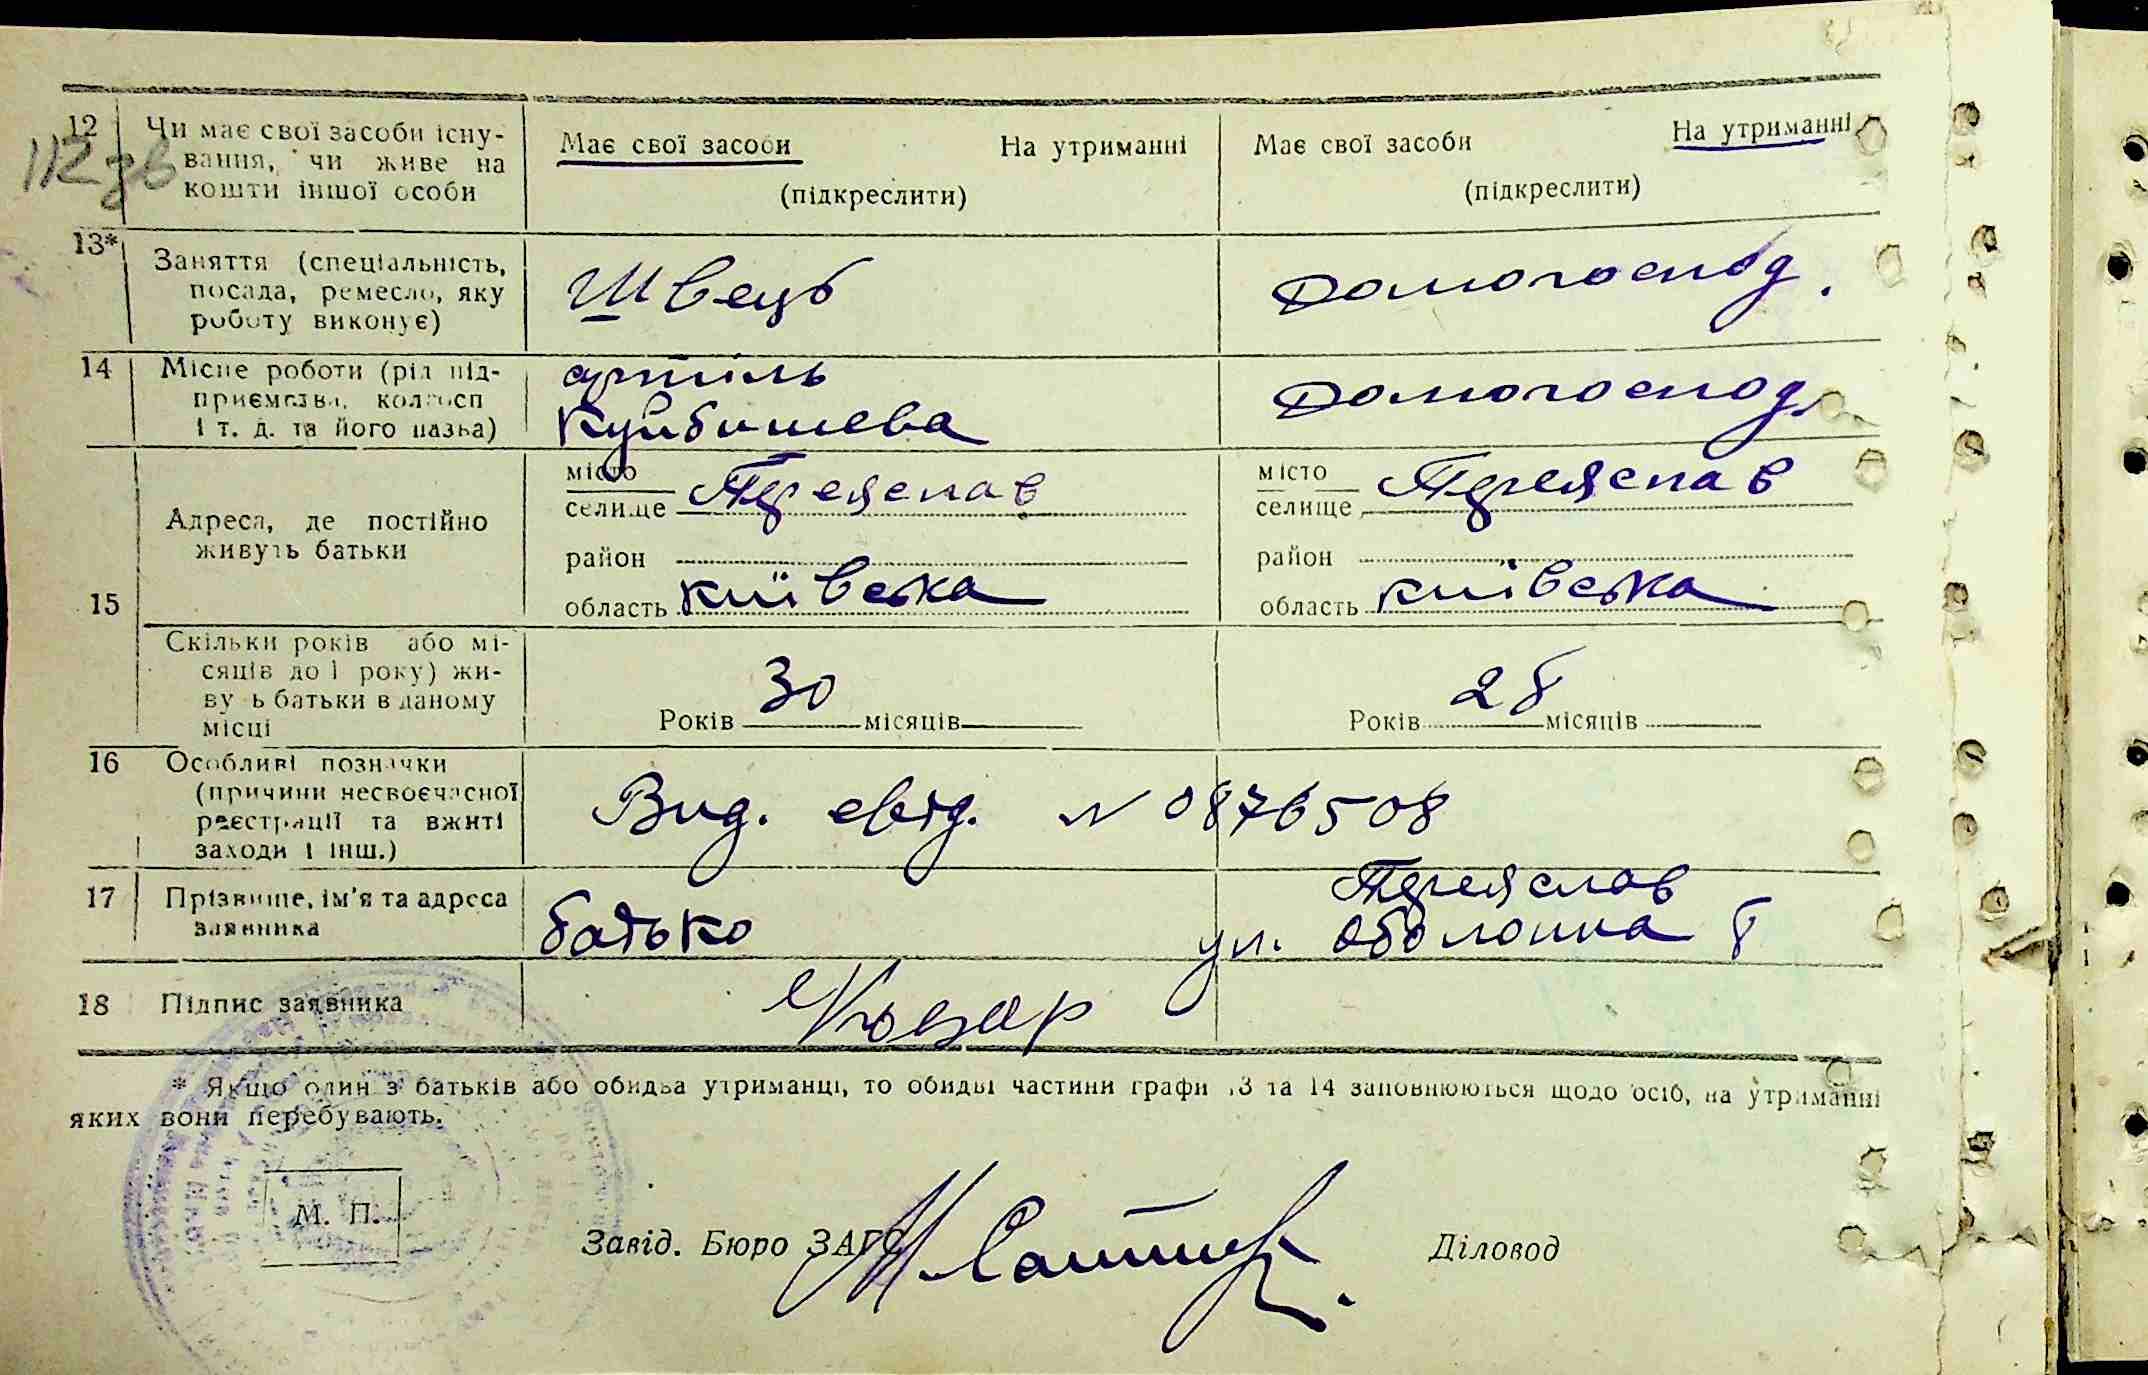 112 зв
12 Чи має свої засоби існу- Має свої засоби На утриманні Має свої засоби На утриманні
вання, чи живе на
кошти іншої особи (підкреслити) (підкреслити)
13* Заняття (спеціальність, Швець Домогоспод.
посада, ремесло, яку
роботу виконує)
14 Місце роботи (рід під- артіль Домогоспод.
приємства, колгосп Куйбишева
і т. д. та його назва)
15 Адреса, де постійно
живуть батьки
місто Переяслав місто Переяслав
селище селище
район район
область київська область київська
Скільки років або мі-
сяців до 1 року) жи-
ву ь батьки в даному
місці
Років 30 місяців Років 28 місяців
16 Особливі позначки
(причини несвоєчасної Вид. свід. N 0876508
реєстрації та вжиті
заходи і інш.)
17 Прізвище, ім'я та адреса Переяслав
заявника батько ул. Оболонна 8
18 Підпис заявника Козар
* Якщо один з батьків або обидва утриманці, то обидві частини графи 13 та 14 заповнюються щодо осіб, на утриманні
яких вони перебувають.
М. П.
Завід. Бюро ЗАГС Діловод